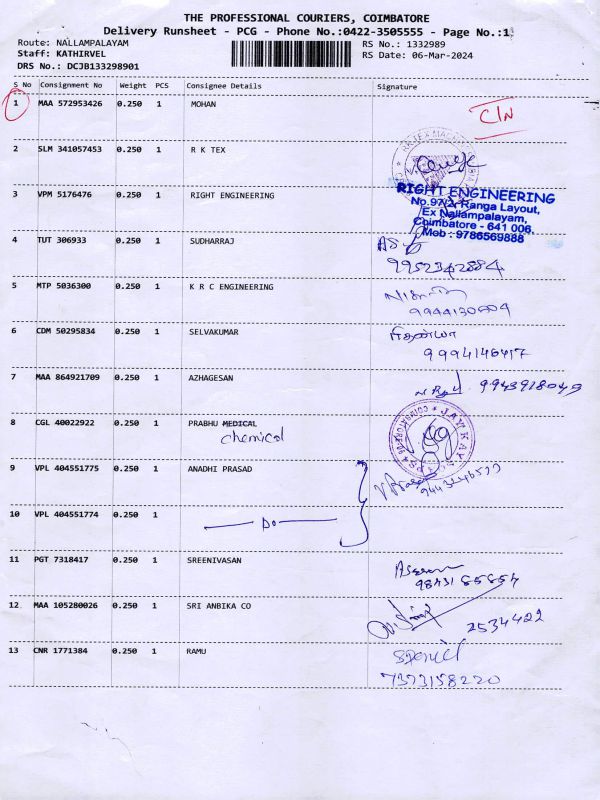 THE PROFESSIONAL COURIERS, COIMBATORE
Delivery Runsheet - PCG - Phone No.:0422-3505555 - Page No.:1
Route: NALLAMPALAYAM
RS No.: 1332989
Staff: KATHIRVEL
RS Date: 06-Mar-2024
DRS No.: DCJB133298901
S No Consignment No Weight PCS Consignee Details Signature
1 MAA 572953426 0.250 1 MOHAN C/N
2 SLM 341057453 0.250 1 R K TEX
3 VPM 5176476 0.250 1 RIGHT ENGINEERING
RIGHT ENGINEERING
No.97/2, Ranga Layout,
Ex Nallampalayam,
Coimbatore - 641 006.
Mob : 9786569888
4 TUT 306933 0.250 1 SUDHARRAJ
9952342884
5 MTP 5036300 0.250 1 K R C ENGINEERING
9944130604
6 CDM 50295834 0.250 1 SELVAKUMAR
9994146417
7 MAA 864921709 0.250 1 AZHAGESAN 9943918049
8 CGL 40022922 0.250 1 PRABHU MEDICAL
chemical
9 VPL 404551775 0.250 1 ANADHI PRASAD
10 VPL 404551774 0.250 1 Do
11 PGT 7318417 0.250 1 SREENIVASAN
9843185854
12 MAA 105280026 0.250 1 SRI ANBIKA CO
2534422
13 CNR 1771384 0.250 1 RAMU
7373158220